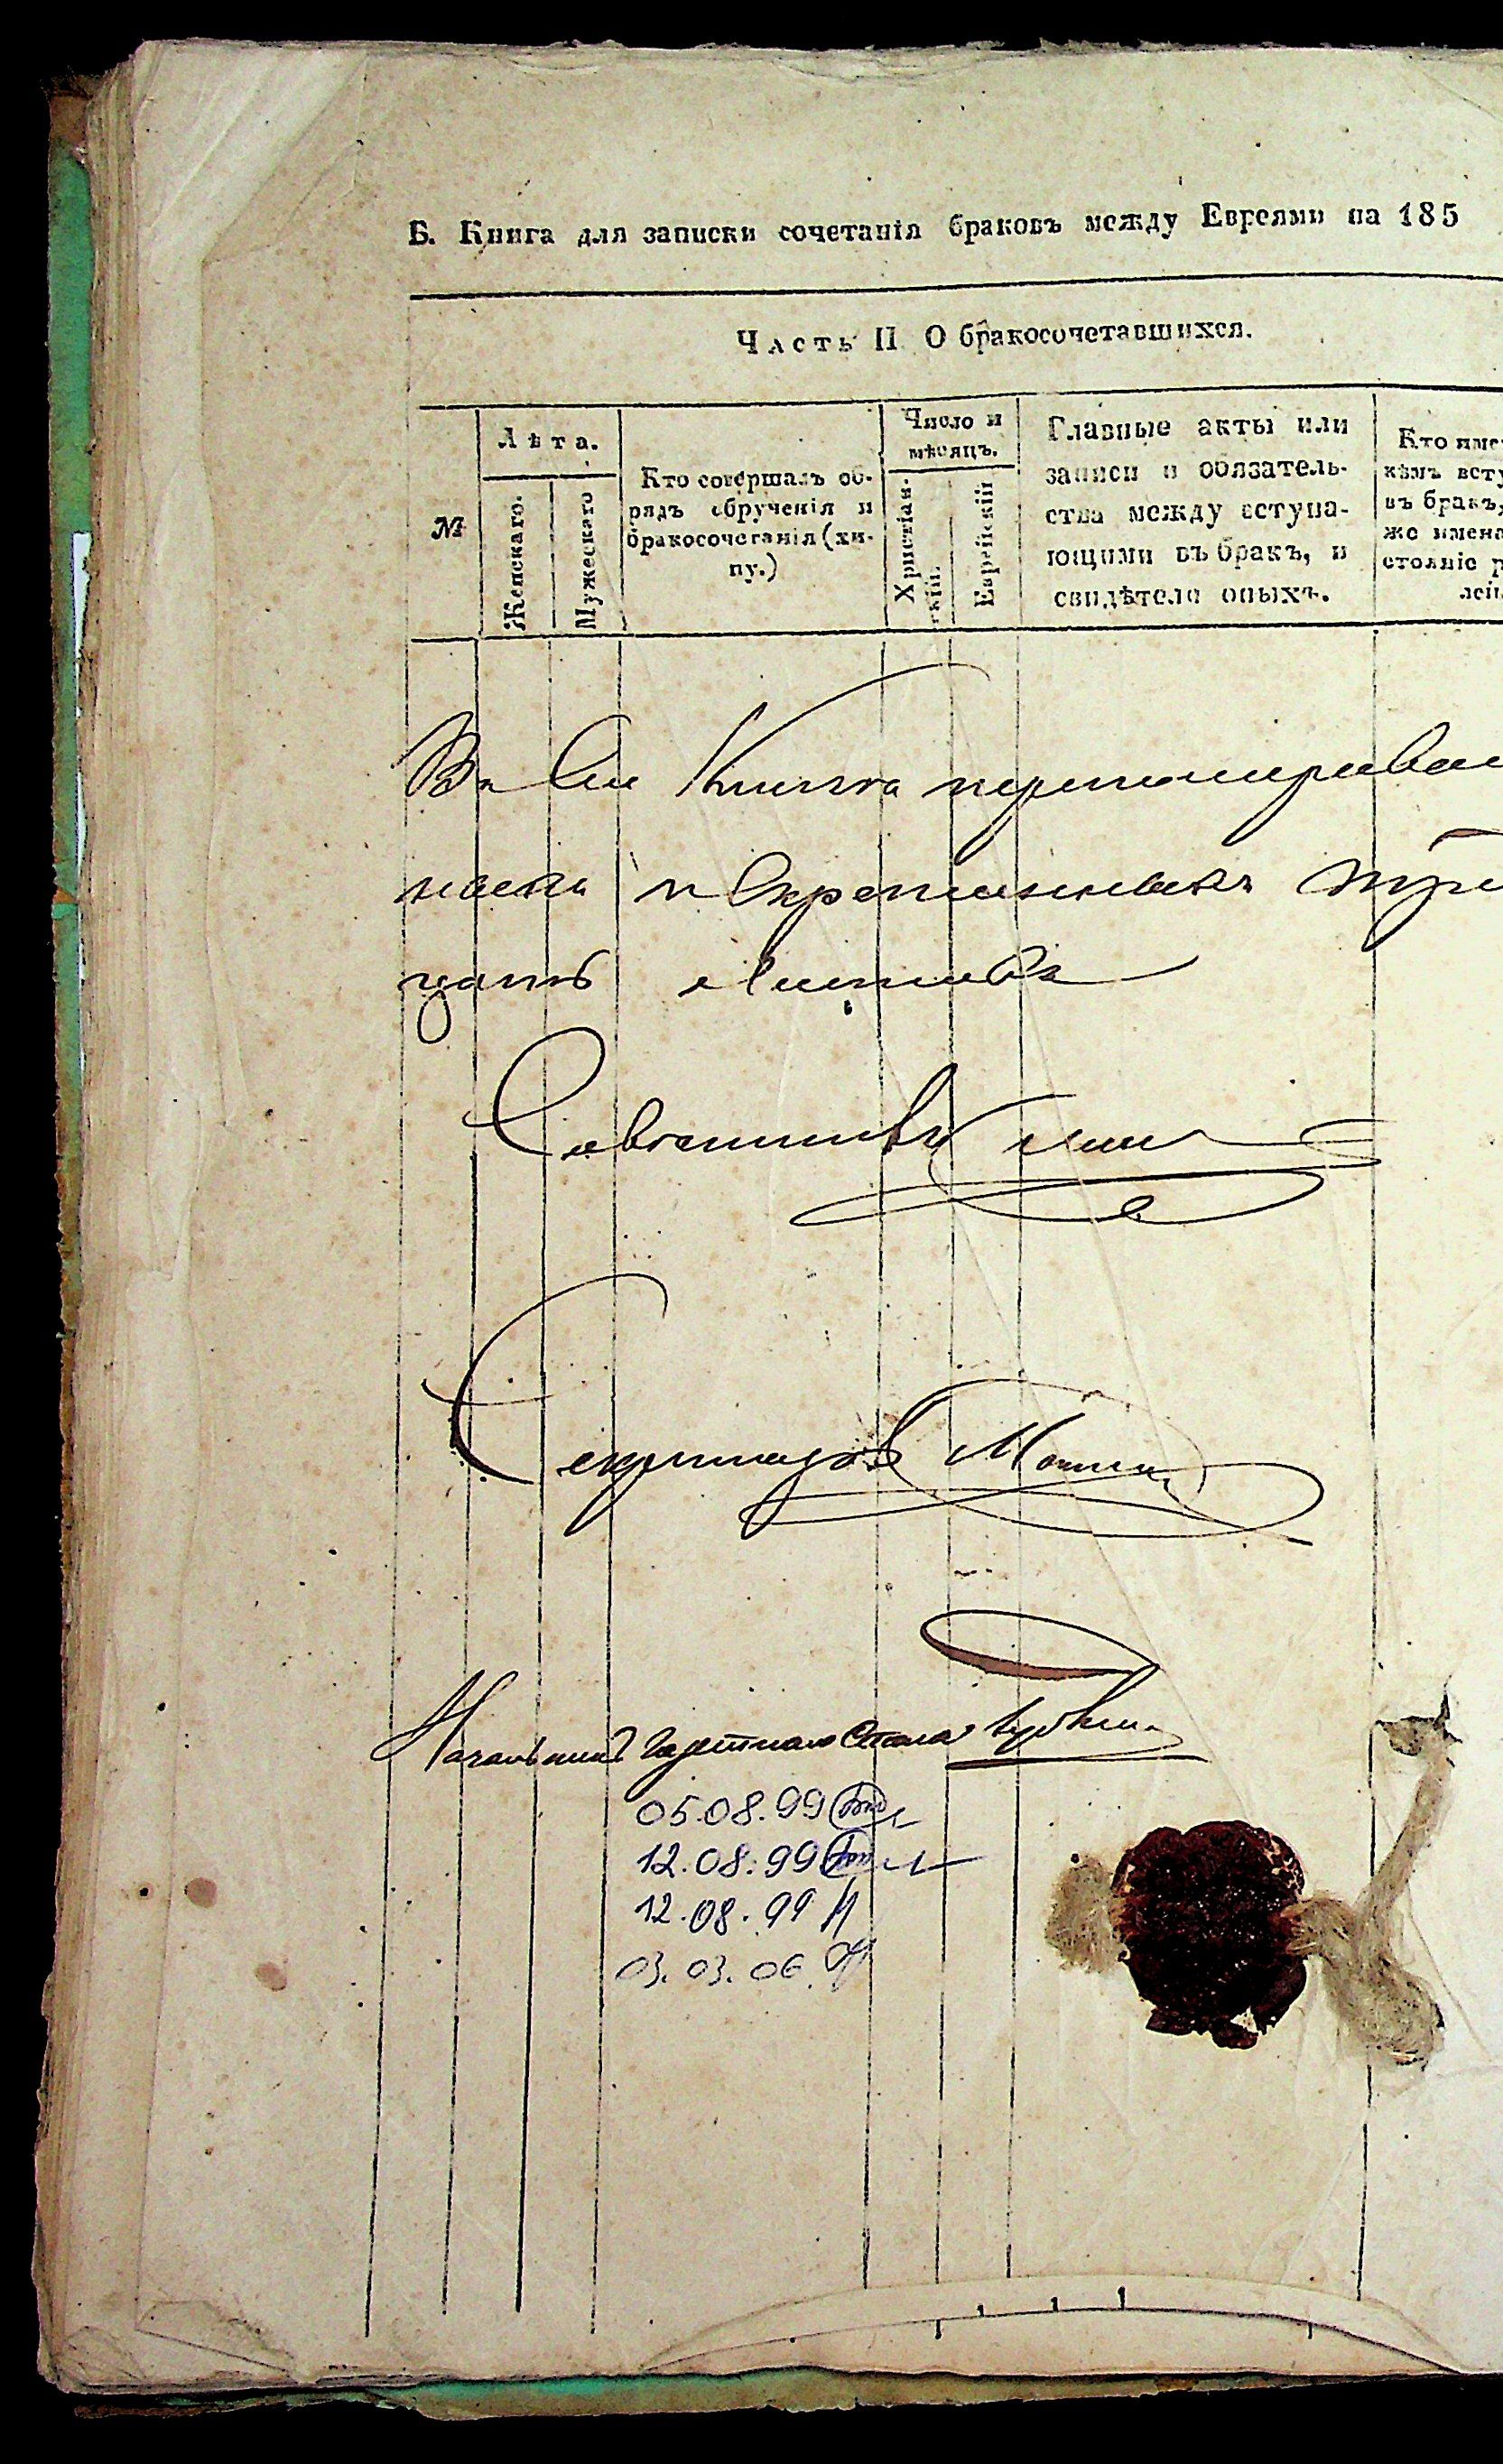 Б. Книга для записки сочетанія браковъ между Евреями на 185
Часть II О бракосочетавшихся.
№
Лѣта.
Женскаго.
Мужескаго
Кто совершалъ об-
рядъ обрученія и
бракосочетанія (хи-
пу.)
Число и
мѣсяцъ.
Христіан-
скій.
Еврейскій
Главные акты или
записи и обязатель-
ства между вступа-
ющими въ бракъ, и
свидѣтели оныхъ.
Кто име
кѣмъ всту
въ бракъ,
же имена
стояніе р
лей
Въ сей Книгѣ
и скрепленныхъ
цать листовъ
Совѣтникъ
Секретарь
Начальник Газетнаго Стола
05.08.99
12.08.99
12.08.99
03.03.06